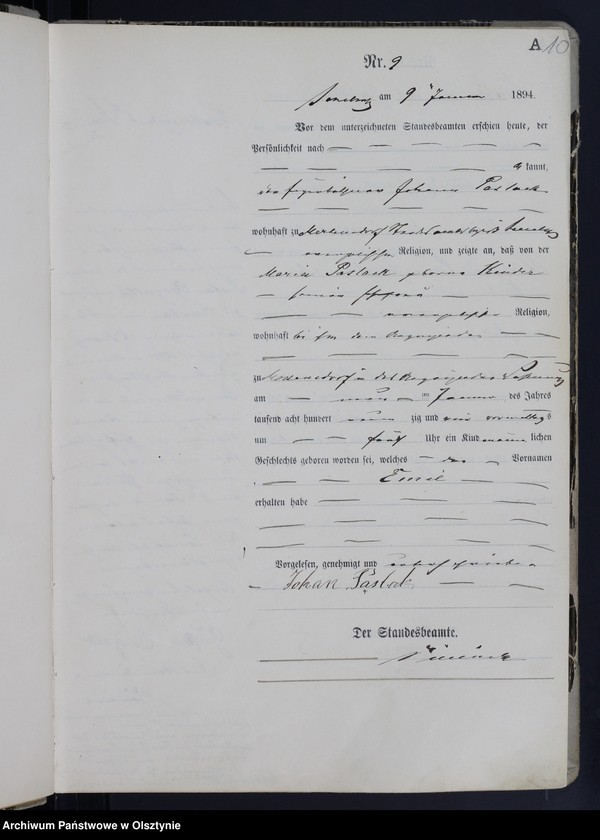 A 10
Nr. 9
am 9 Januar 1894.
Vor dem unterzeichneten Standesbeamten erschien heute, der
Persönlichkeit nach
kannt,
Johann Paslack
wohnhaft zu
Religion, und zeigte an, daß von der
Maria Paslack geborene Kinder
seiner Ehefrau
evangelischer Religion,
wohnhaft bei ihm dem Anzeigenden
zu in des Anzeigenden Wohnung
am neun ten Januar des Jahres
tausend acht hundert neun zig und vier vormittags
um fünf Uhr ein Kind männ lichen
Geschlechts geboren worden sei, welches den Vornamen
Emil
erhalten habe
Vorgelesen, genehmigt und unterschrieben
Johan Paslack
Der Standesbeamte.
Archiwum Państwowe w Olsztynie